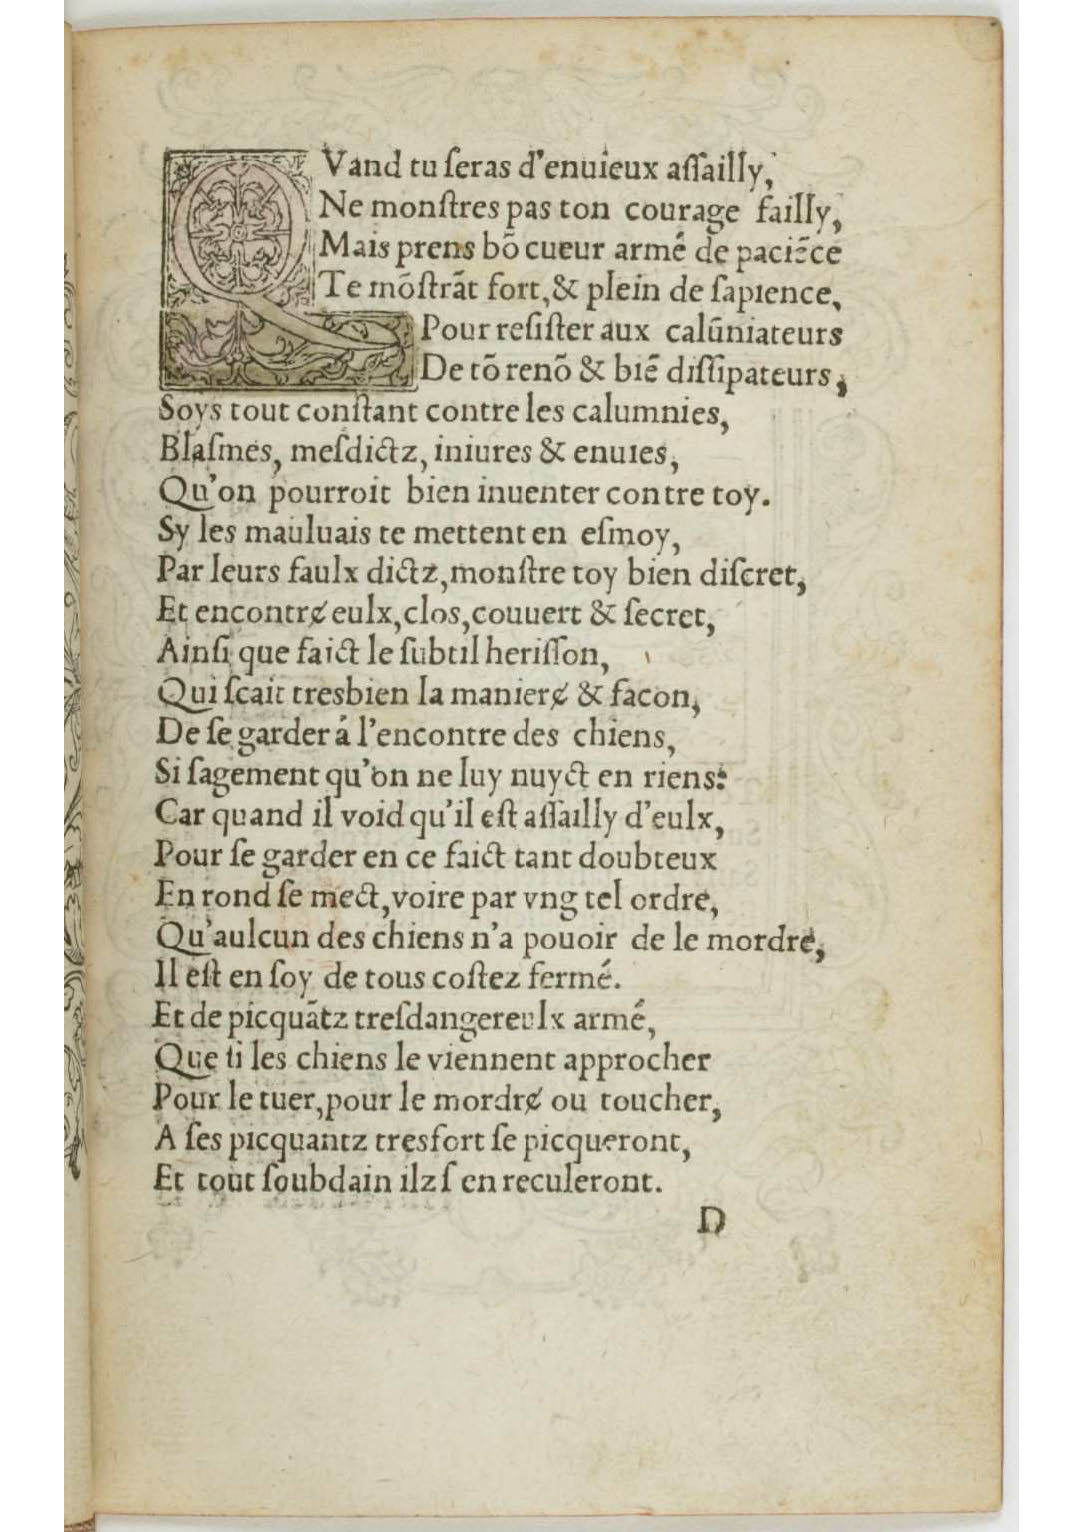 QVand tu ſeras d'enuieux aſſailly,
Ne monſtres pas ton courage failly,
Mais prens bõ cueur armé de paciẽce
Te mõſtrãt fort, & plein de ſapience,
Pour reſiſter aux calũniateurs
De tõ renõ & biẽ diſſipateurs,
Soys tout conſtant contre les calumnies,
Blaſmes, meſdictz, iniures & enuies,
Qu'on pourroit bien inuenter contre toy.
Sy les mauluais te mettent en eſmoy,
Par leurs faulx dictz, monſtre toy bien diſcret,
Et encontrɇ eulx, clos, couuert & ſecret,
Ainſi que faict le ſubtil heriſſon,
Qui ſcait tresbien la manierɇ & facon,
De ſe garder á l'encontre des chiens,
Si ſagement qu'on ne luy nuyct en riens:
Car quand il void qu'il eſt aſſailly d'eulx,
Pour ſe garder en ce faict tant doubteux
En rond ſe mect, voire par vng tel ordre,
Qu'aulcun des chiens n'a pouoir de le mordre,
Il eſt en ſoy de tous coſtez fermé.
Et de picquãtz treſdangereulx armé,
Que ſi les chiens le viennent approcher
Pour le tuer, pour le mordrɇ ou toucher,
A ſes picquantz tresfort ſe picqueront,
Et tout ſoubdain ilz ſ en reculeront.
D